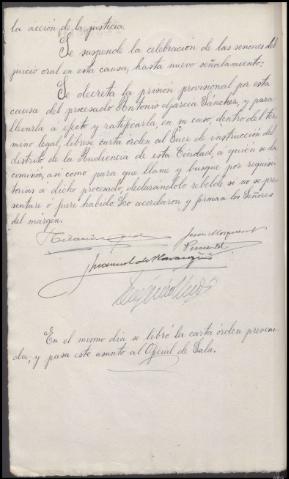 la acción de la justicia.
Se suspende la celebración de las sesiones del
juicio oral en esta causa, hasta nuevo señalamiento;
Se decreta la prisión provisional por esta
causa del procesado Antonio García Sánchez, y para
llevarla a efecto y ratificarla, en su caso, dentro del tér
mino legal, líbrese carta órden al Juez de instrucción del
distrito de la Audiencia de esta Ciudad, a quien se da
comisión, así como para que llame y busque por requisi
torias a dicho procesado, declarandolo rebelde si no se pre
sentare ó fuere habido. Lo acordaron y firman los Señores
del margen.
En el mismo día se libró la carta órden preveni
da, y pasa este asunto al Oficial de Sala.